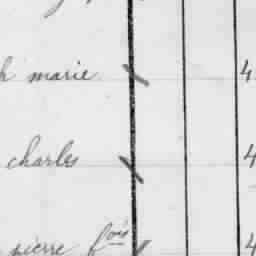 h marie 4
charles 4
pierre f^ois 4